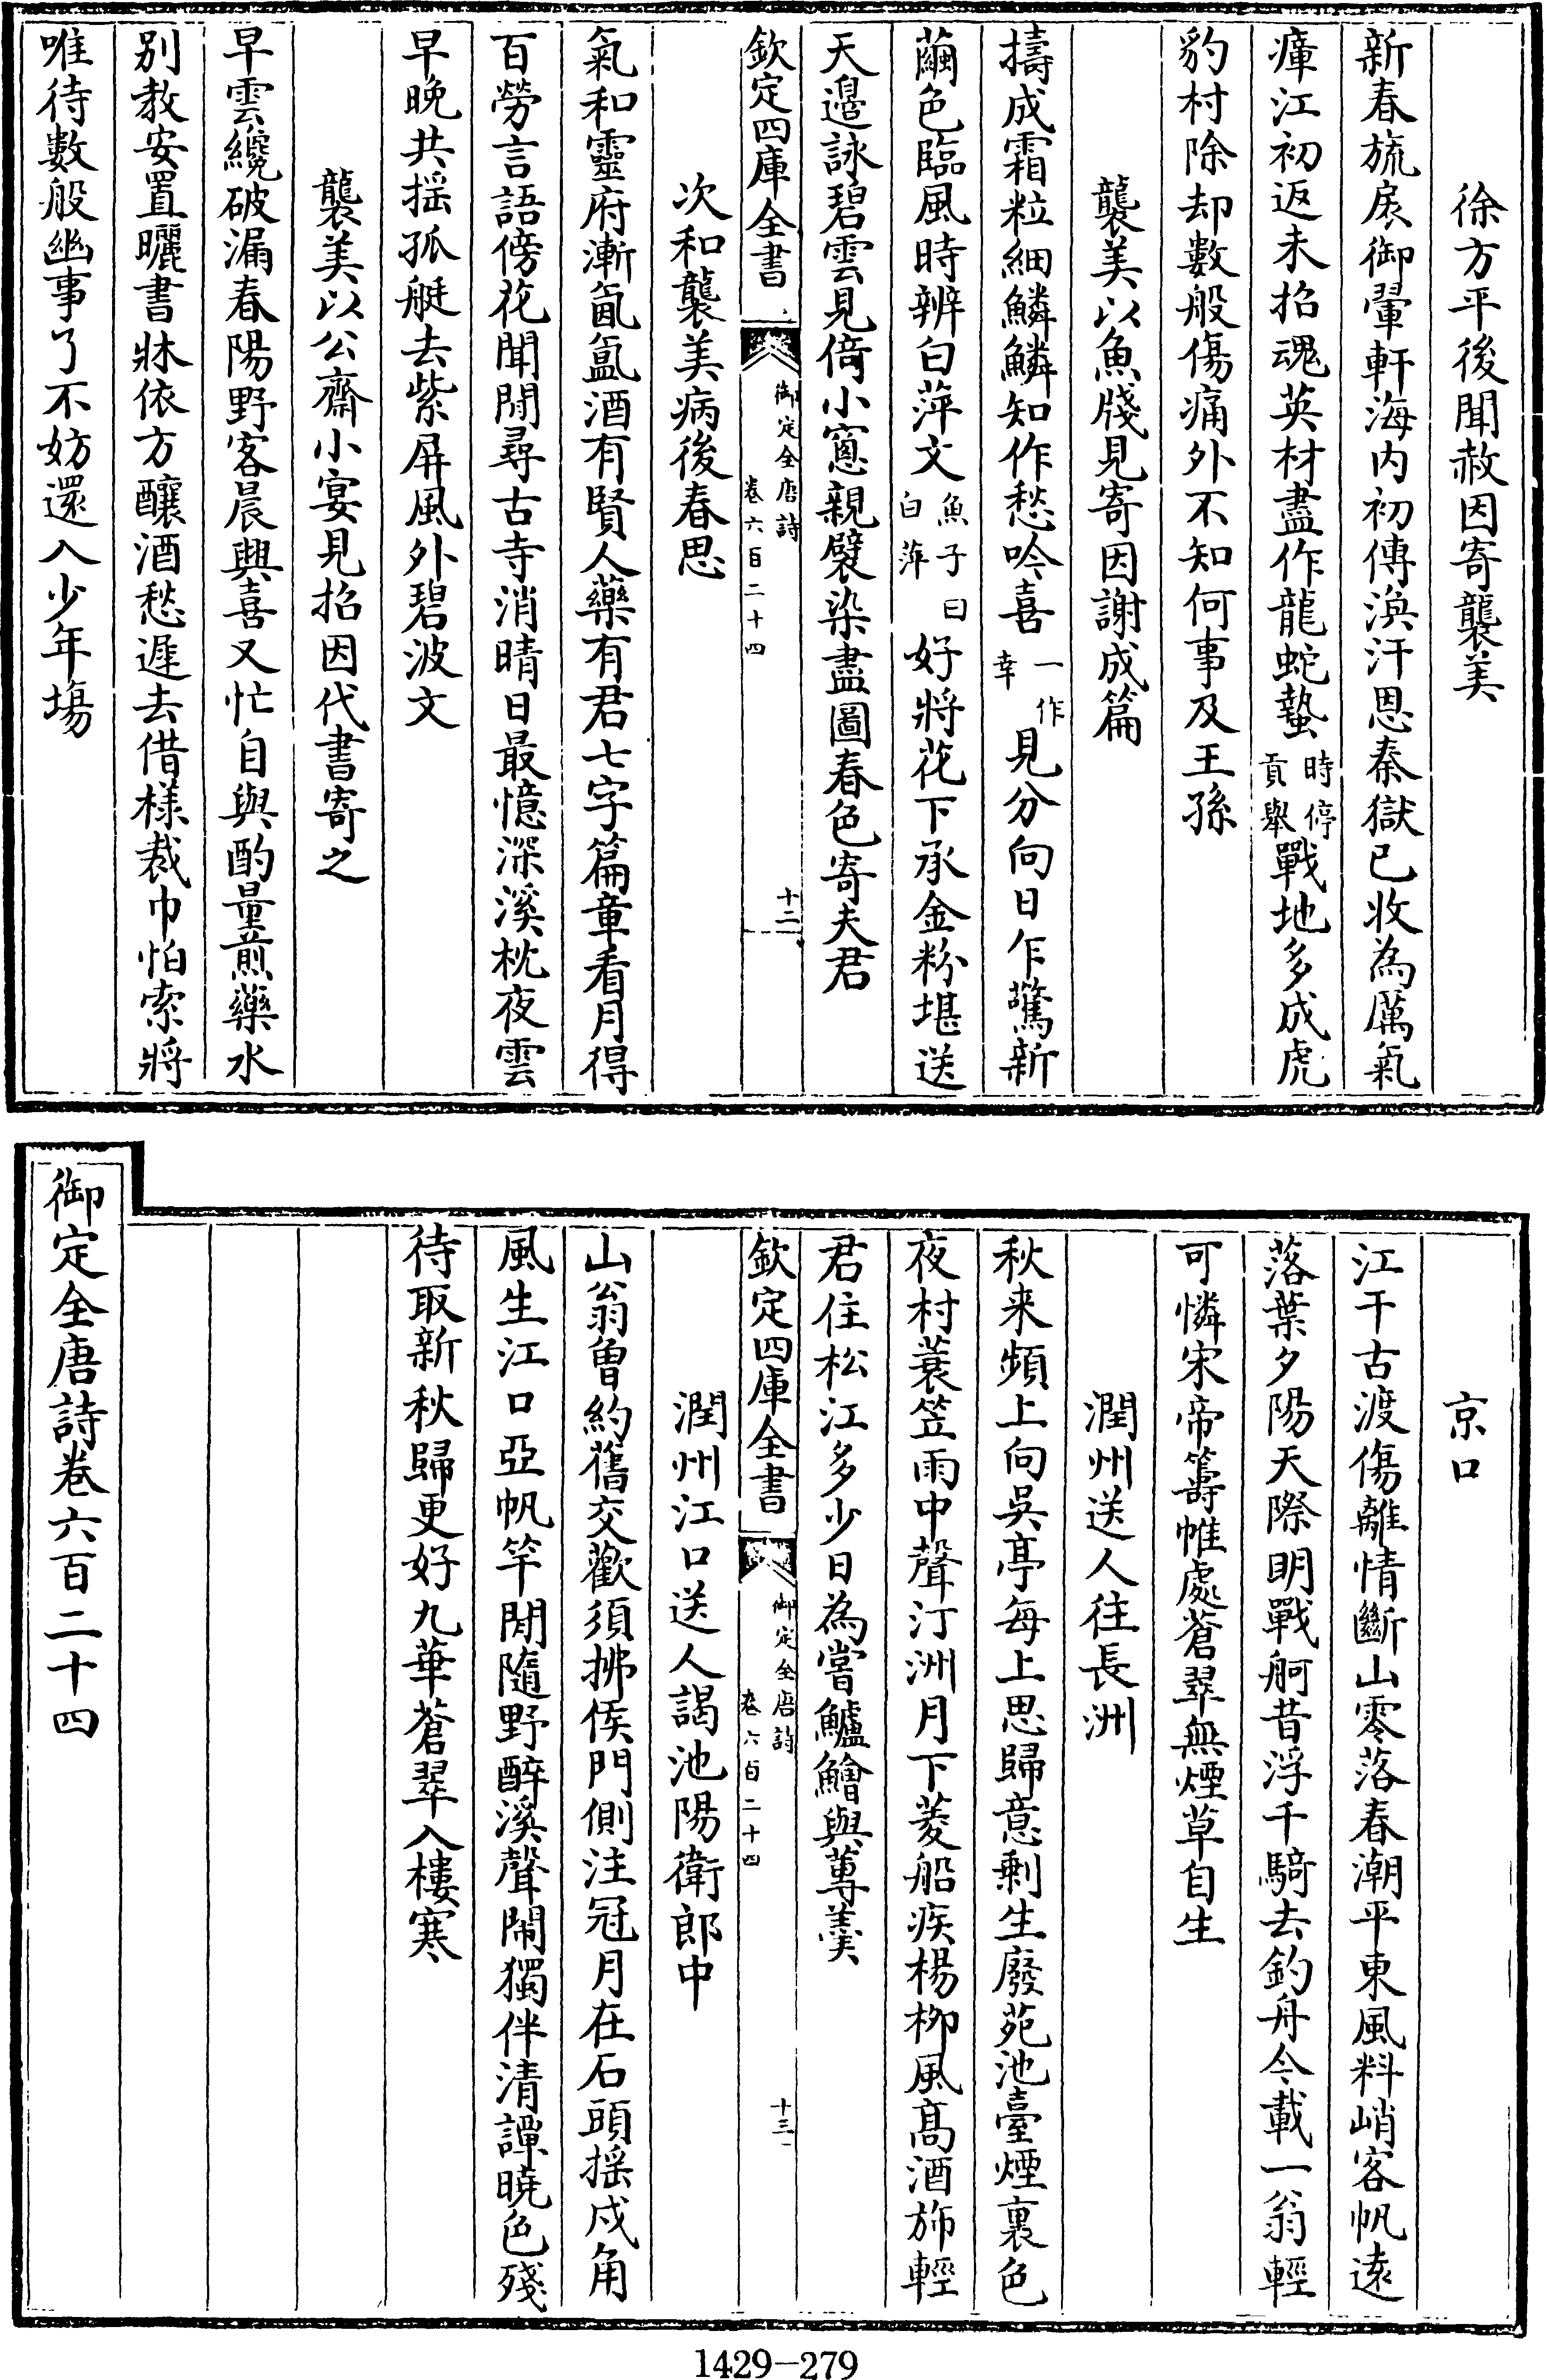 徐方平後聞赦因寄襲美
新春旒扆御翬軒海内初傳渙汗恩秦獄已收為厲氣
瘴江初返未招魂英材盡作龍蛇蟄時停貢舉戰地多成虎
豹村除却數般傷痛外不知何事及王孫
襲美以魚牋見寄因謝成篇
擣成霜粒細鱗鱗知作愁吟喜一作幸見分向日乍驚新
繭色臨風時辨白萍文魚子曰白萍好將花下承金粉堪送
天邉詠碧雲見倚小窓親襞染盡圖春色寄夫君
欽定四庫全書
御定全唐詩
卷六百二十四
十二
次和襲美病後春思
氣和靈府漸氤氲酒有賢人藥有君七字篇章看月得
百勞言語傍花聞閒尋古寺消晴日最憶深溪枕夜雲
早晚共揺孤艇去紫屏風外碧波文
襲美以公齋小宴見招因代書寄之
早雲纔破漏春陽野客晨興喜又忙自與酌量煎藥水
别教安置曬書牀依方釀酒愁遲去借様裁巾怕索將
唯待數般幽事了不妨還入少年塲
京口
江干古渡傷離情斷山零落春潮平東風料峭客帆逺
落葉夕陽天際明戰舸昔浮千騎去釣舟今載一翁輕
可憐宋帝籌帷處蒼翠無煙草自生
潤州送人往長洲
秋来頻上向吳亭每上思歸意剩生廢苑池臺煙裏色
夜村蓑笠雨中聲汀洲月下菱船疾楊柳風髙酒斾輕
君住松江多少日為嘗鱸鱠與蓴羹
欽定四庫全書
御定全唐詩
卷六百二十四
十三
潤州江口送人謁池陽衛郎中
山翁曾約舊交歡須拂侯門側注冠月在石頭揺戍角
風生江口亞帆竿閒隨野醉溪聲閙獨伴清譚曉色殘
待取新秋歸更好九華蒼翠入樓寒
御定全唐詩卷六百二十四
1429-279